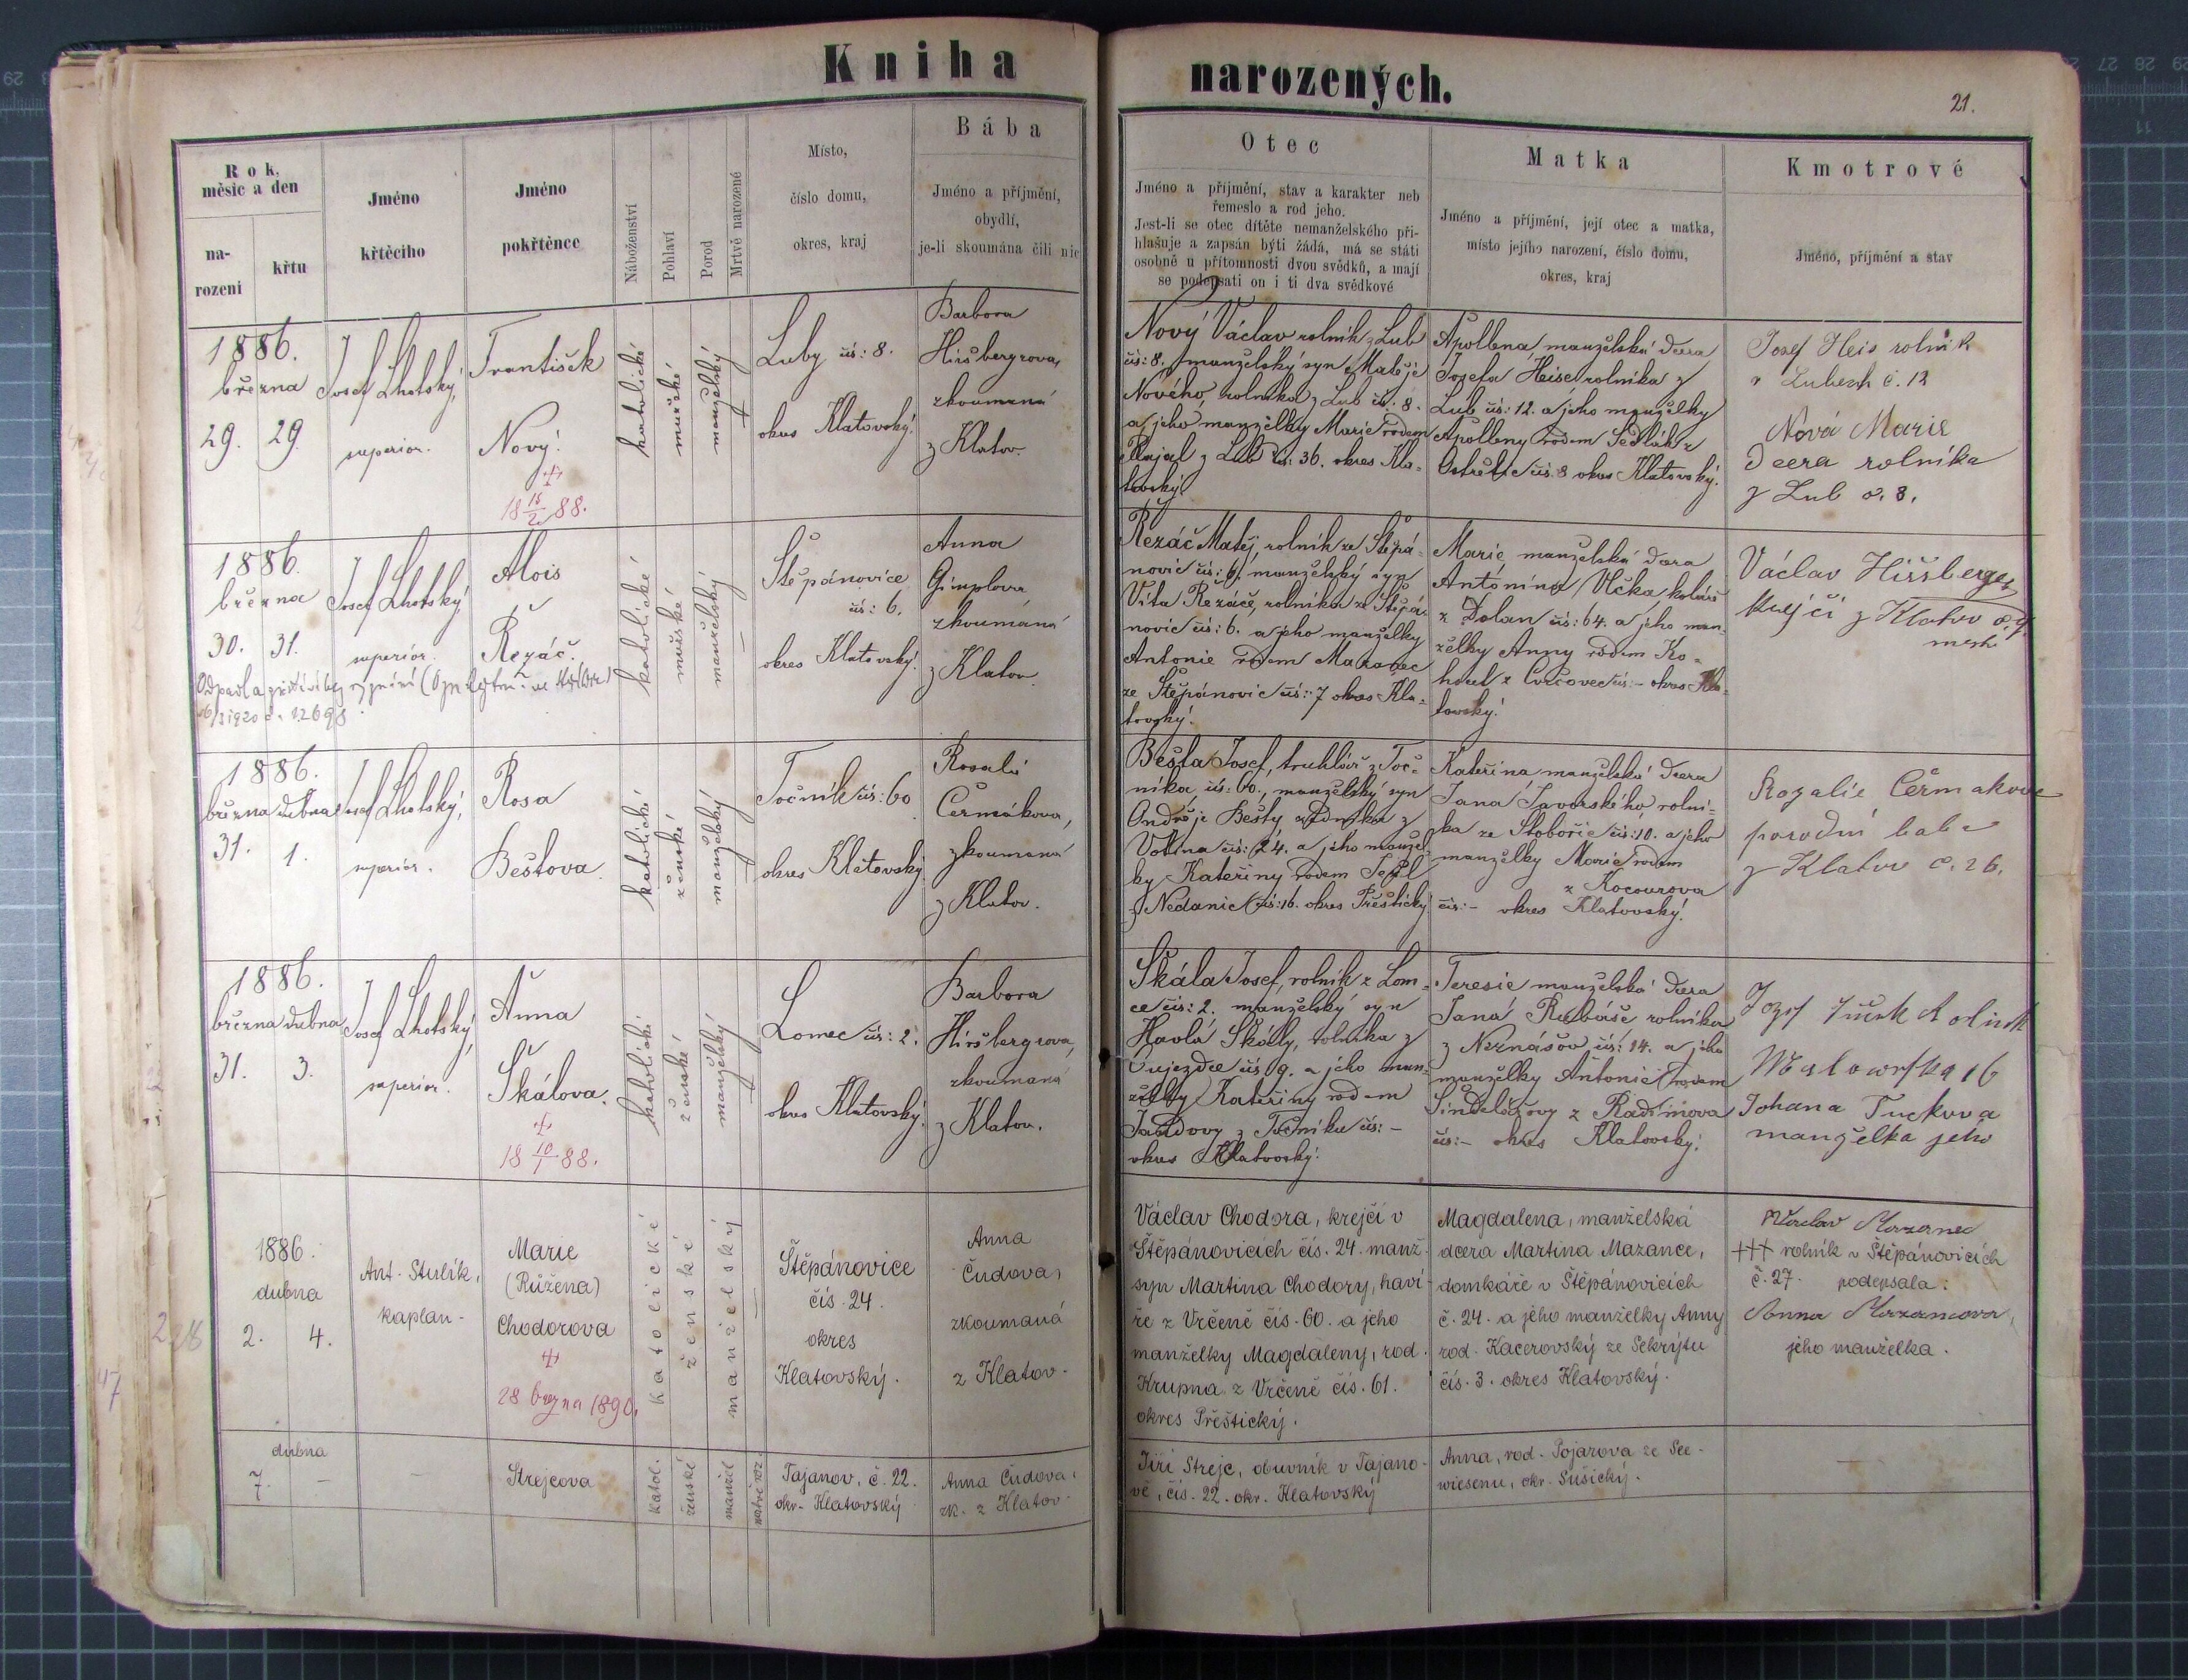 Kniha narozených.
21.
Rok, měsíc a den
narození
křtu
Jméno křtěcího
Jméno pokřtěnce
Náboženství
Pohlaví
Porod
Mrtvě narozené
Místo,
číslo domu,
okres, kraj
Bába
Jméno a příjmění,
obydlí,
je-li skoumána čili nic
Otec
Jméno a příjmění, stav a karakter neb
řemeslo a rod jeho.
Jest-li se otec dítěte nemanželského při-
hlašuje a zapsán býti žádá, má se státi
osobně u přítomnosti dvou svědků, a mají
se podepsati on i ti dva svědkové
Matka
Jméno a příjmění, její otec a matka,
místo jejího narození, číslo domu,
okres, kraj
Kmotrové
Jméno, příjmění a stav
1886.
března
29. 29.
Josef Lhotský,
superior.
František
Nový.
+
18 18/2 88.
katolické
mužské
manželský
Luby čís: 8.
okres Klatovský.
Barbora
Hirsbergrova,
zkoumaná
z Klatov.
Nový Václav rolník z Lub
čís: 8. manželský syn Matěje
Nového, rolníka z Lub čís. 8.
a jeho manželky Marie rodem
Rajal z Lub čís: 36. okres Kla-
tovský.
Apollena manželská dcera
Josefa Heise rolníka z
Lub čís: 12. a jeho manželky
Apolleny rodem Sedlák z
Ostřetic čís. 8 okres Klatovský.
Josef Heis rolník
v Lubech č. 12
Nová Marie
dcera rolníka
z Lub č. 8.
1886.
března
30. 31.
Josef Lhotský
superior.
Alois
Řezáč.
katolické
mužské
manželský
—
Štěpánovice
čís: 6.
okres Klatovský.
Anna
Gimplova
zkoumaná
z Klatov.
Řezáč Matěj, rolník ze Štěpá-
novic čís: 6. manželský syn
Víta Řezáče, rolníka ze Štěpá-
novic čís: 6. a jeho manželky
Antonie rodem Mazanec
ze Štěpánovic čís: 7 okres Kla-
tovský.
Marie manželská dcera
Antonína Vlčka koláře
z Dolan čís: 64. a jeho man-
želky Anny rodem Ko-
hout z čís: - okres Kla-
tovský.
Václav Hirsberger
krejčí z Klatov
1886.
března dubna
31. 1.
Josef Lhotský,
superior.
Rosa
Beštova.
katolické
ženské
manželský
Točník čís: 60
okres Klatovský
Rosalie
Čermákova,
zkoumaná
z Klatov.
Bešta Josef, truhlář z Toč-
níka čís: 60., manželský syn
Ondřeje Bešty z
čís: 24. a jeho manžel
ky Kateřiny rodem
z Nedanic čís: 16. okres Přeštický
Kateřina manželská dcera
Jana Javorského, rolní-
ka ze Stobořic čís: 10. a jeho
manželky Marie rodem
z Kocourova
čís: - okres Klatovský.
Rozalie Čermakova
porodní baba
z Klatov č. 26.
1886.
března dubna
31. 3.
Josef Lhotský,
superior.
Anna
Škálova.
+
18 10/1 88.
katolické
ženské
manželský
Lomec čís: 2.
okres Klatovský.
Barbora
Hirsbergrova,
zkoumaná
z Klatov.
Škála Josef, rolník z Lom-
ce čís: 2. manželský syn
Havla Škály, rolníka z
Oujezdce čís 9. a jeho man-
želky Kateřiny rodem
z Točníku čís: -
okres Klatovský.
Teresie manželská dcera
Jana Rubáše rolníka
z Neznášov čís: 14. a jeho
manželky Antonie rodem
Šindelářovy z Radinova
čís: - okres Klatovský.
Johana Tuckova
manželka jeho
1886.
dubna
2. 4.
Ant. Stulík,
kaplan.
Marie
(Růžena)
Chodorova
+
28 března 1890.
katolické
ženské
manželský
—
Štěpánovice
čís. 24.
okres
Klatovský.
Anna
Čudova,
zkoumaná
z Klatov.
Václav Chodora, krejčí v
Štěpánovicích čís. 24. manž.
syn Martina Chodory, haví-
ře z Vrčeně čís. 60. a jeho
manželky Magdaleny, rod.
Krupna z Vrčeně čís. 61.
okres Přeštický.
Magdalena, manželská
dcera Martina Mazance,
domkáře v Štěpánovicích
č. 24. a jeho manželky Anny
rod. Kacerovský ze Sekrýtu
čís. 3. okres Klatovský.
Václav Mazanec
+++ rolník v Štěpánovicích
č. 27. podepsala:
Anna Mazancova,
jeho manželka.
dubna
7. — —
Strejcova
katol.
ženské
manžel
mrtvě roz
Tajanov, č. 22.
okr. Klatovský
Anna Čudova,
zk. z Klatov.
Jiří Strejc, obuvník v Tajano-
vě, čís. 22. okr. Klatovský
Anna, rod. Pojarova ze See-
wiesenu, okr. Sušický.
—